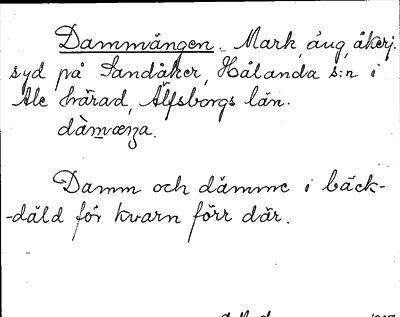 Dammängen. Mark, äng, åkerj.
syd på Sandåker, Hålanda s:n i
Ale härad, Älfsborgs län.
dàmæŋa.
Damm och dämme i bäck-
-däld för kvarn förr där.